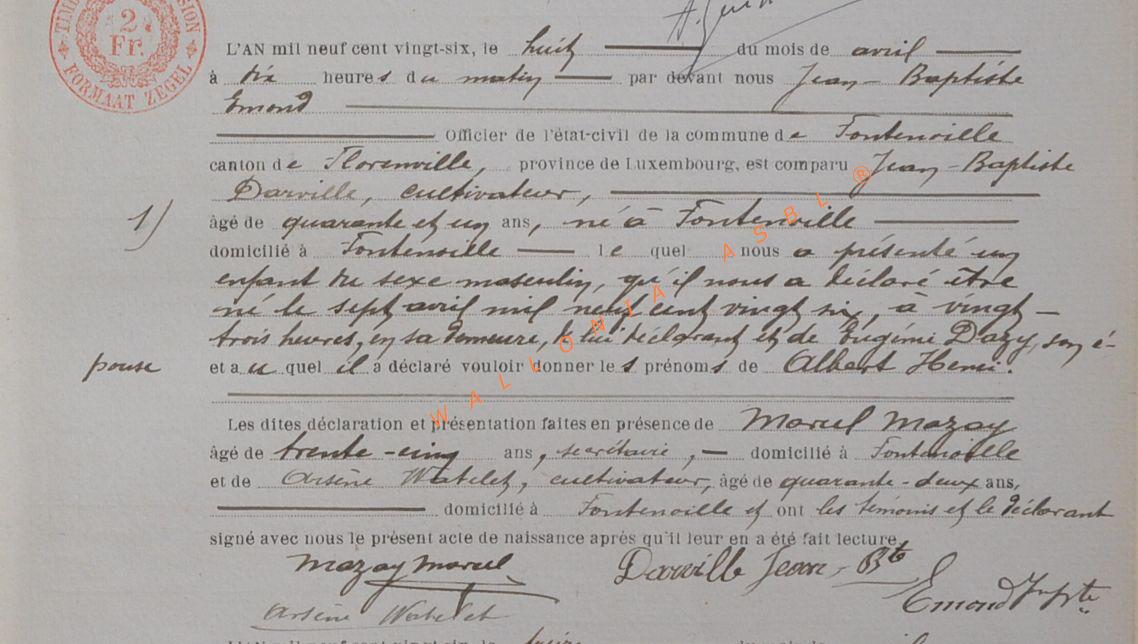 TIMBRE
2
Fr.
FORMAAT ZEGEL
L'AN mil neuf cent vingt-six, le huit du mois de avril
à dix heures du matin par devant nous Jean-Baptiste
Emond
Officier de l'état-civil de la commune de Fontenoille
canton de Florenville, province de Luxembourg, est comparu Jean-Baptiste
Darville, cultivateur,
1)
âgé de quarante et un ans, né à Fontenoille
domicilié à Fontenoille lequel nous a présenté un
enfant du sexe masculin, qu'il nous a déclaré être
né le sept avril mil neuf cent vingt six, à vingt-
trois heures, en sa demeure, de lui déclarant et de Eugénie Dazy, son é-
pouse et au quel il a déclaré vouloir donner les prénoms de Albert Henri.
Les dites déclaration et présentation faites en présence de Marcel Mazay
âgé de trente-cinq ans, secrétaire, domicilié à Fontenoille
et de Arsène Watelet, cultivateur, âgé de quarante-deux ans,
domicilié à Fontenoille et ont les témoins et le déclarant
signé avec nous le présent acte de naissance après qu'il leur en a été fait lecture.
Mazay Marcel
Darville Jean-Bte
Emond
Arsène Watelet
WALLONIA ASBL ®